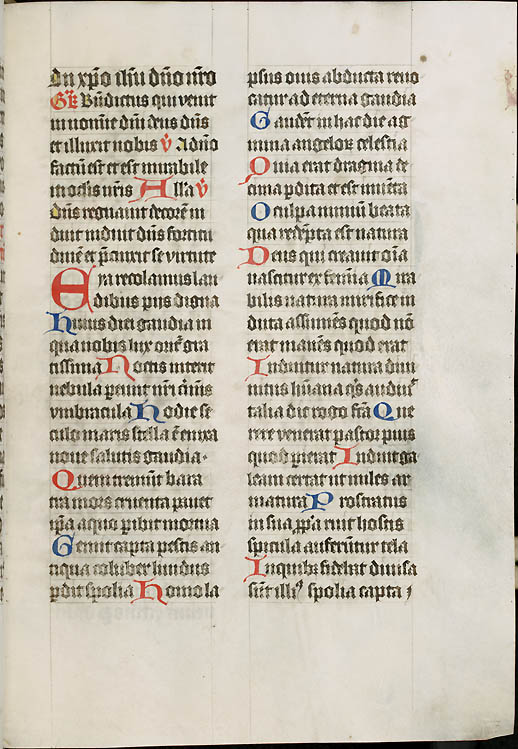 dn xp̄o ih̄u dn̄o nr̄o
Gr̄ Bn̄dictus qui venit
in nomīe dn̄i deus dn̄s
et illuxit nobis v̄ A dn̄o
factū est et est mirabile
in oculis nr̄is Alla v̄
dn̄s regnauit decorē in
duit induit dn̄s fortitu
dinē et p̄cinxit se virtute
Eya recolamus lau
dibus pijs digna
Huius diei gaudia in
qua nobis lux orit̄ gra
tissima Noctis interit
nebula pereunt nr̄i c̄mīs
vmbracula Hodie se
culo maris stella ē enixa
noue salutis gaudia ·
Quem tremunt bara
tra mors cruenta pauet
ip̄a a quo p̄ibit mortua
Gemit capta pestis an
tiqua coluber liuidus
p̄dit spolia Homo la
psus ouis abducta reuo
catur ad eterna gaudia
Gaudent in hac die ag
mina angelor̄ celestia
Quia erat dragma de
cima p̄dita et est inuēta
O culpa nimiū beata
qua redēpta est natura
Deus qui creauit oīa
nascitur ex femīa Mira
bilis natura mirifice in
duta assumēs quod nō
erat manēs quod erat
Induitur natura diui
nitus hūana q̄s audiuit
talia dic rogo fc̄a Que
rere venerat pastor pius
quod pierat Induit ga
leam certat ut miles ar
matura Prostratus
in sua p̄p̄a ruit hostis
spicula auferūtur tela
In quibȝ fidebat diuisa
sūt illiꝰ spolia capta